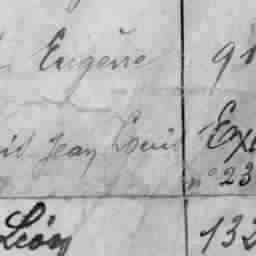 Eugène 91
Jean Louis Ex
n° 23
Léon 132